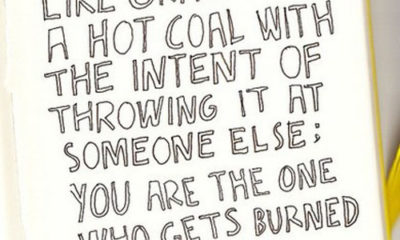 LIKE
A HOT COAL WITH
THE INTENT OF
THROWING IT AT
SOMEONE ELSE;
YOU ARE THE ONE
WHO GETS BURNED